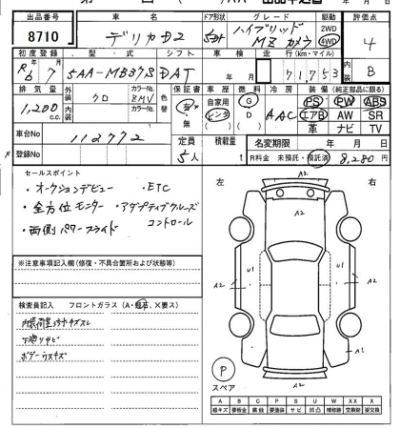 出品番号 車名 ドア形状 グレード 駆動 評価点
8710 デリカD2 5ドア ハイブリッド MZ カメラ 2WD 4WD 4
初度登録 型・式 シフト 車検 走行(Km・マイル) 内装
R6 7 5AA-MB37S DAT 年 月 71,753 B
排気量 外装 カラーNo. 色替 保証書 車歴 燃料 冷房 装備(純正部品に限る)
1,200 c.c. クロ ZMV 有 無 自家用 レンタ G D AAC PS PW ABS
エアB AW SR
革 ナビ TV
車台No 112772 定員 積載量 名変期限 年 月 日
登録No 5人 t R料金 未預託・預託済 8,280 円
セールスポイント
・オークションデビュー ・ETC
・全方位モニター ・アダプティブクルーズコントロール
・両側パワースライド
※注意事項記入欄(修復・不具合箇所および状態等)
検査員記入 フロントガラス(A・飛石、X要ス)
内装荷室コゲキズスレ
下廻りサビ
ボデーウスキズ
左 右
A2
A2 U1 U1 A2
A1 A1
A2
P
スペア
A2
A B C P S U W X XX
線キズ 要板金 腐蝕 要塗装 サビ 凹凸 補修跡 交換跡